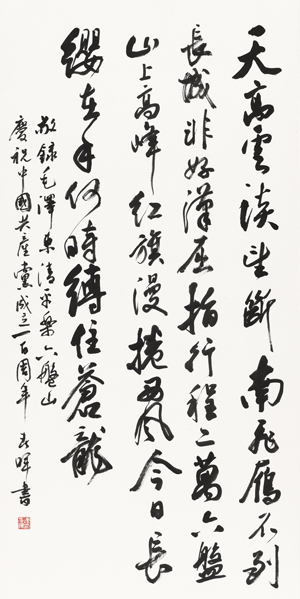 天高雲淡望斷南飛雁不到
長城非好漢屈指行程二萬六盤
山上高峰紅旗漫捲西風今日長
纓在手何時縛住蒼龍
敬錄毛澤東清平樂六盤山
慶祝中國共產黨成立一百周年 暉書